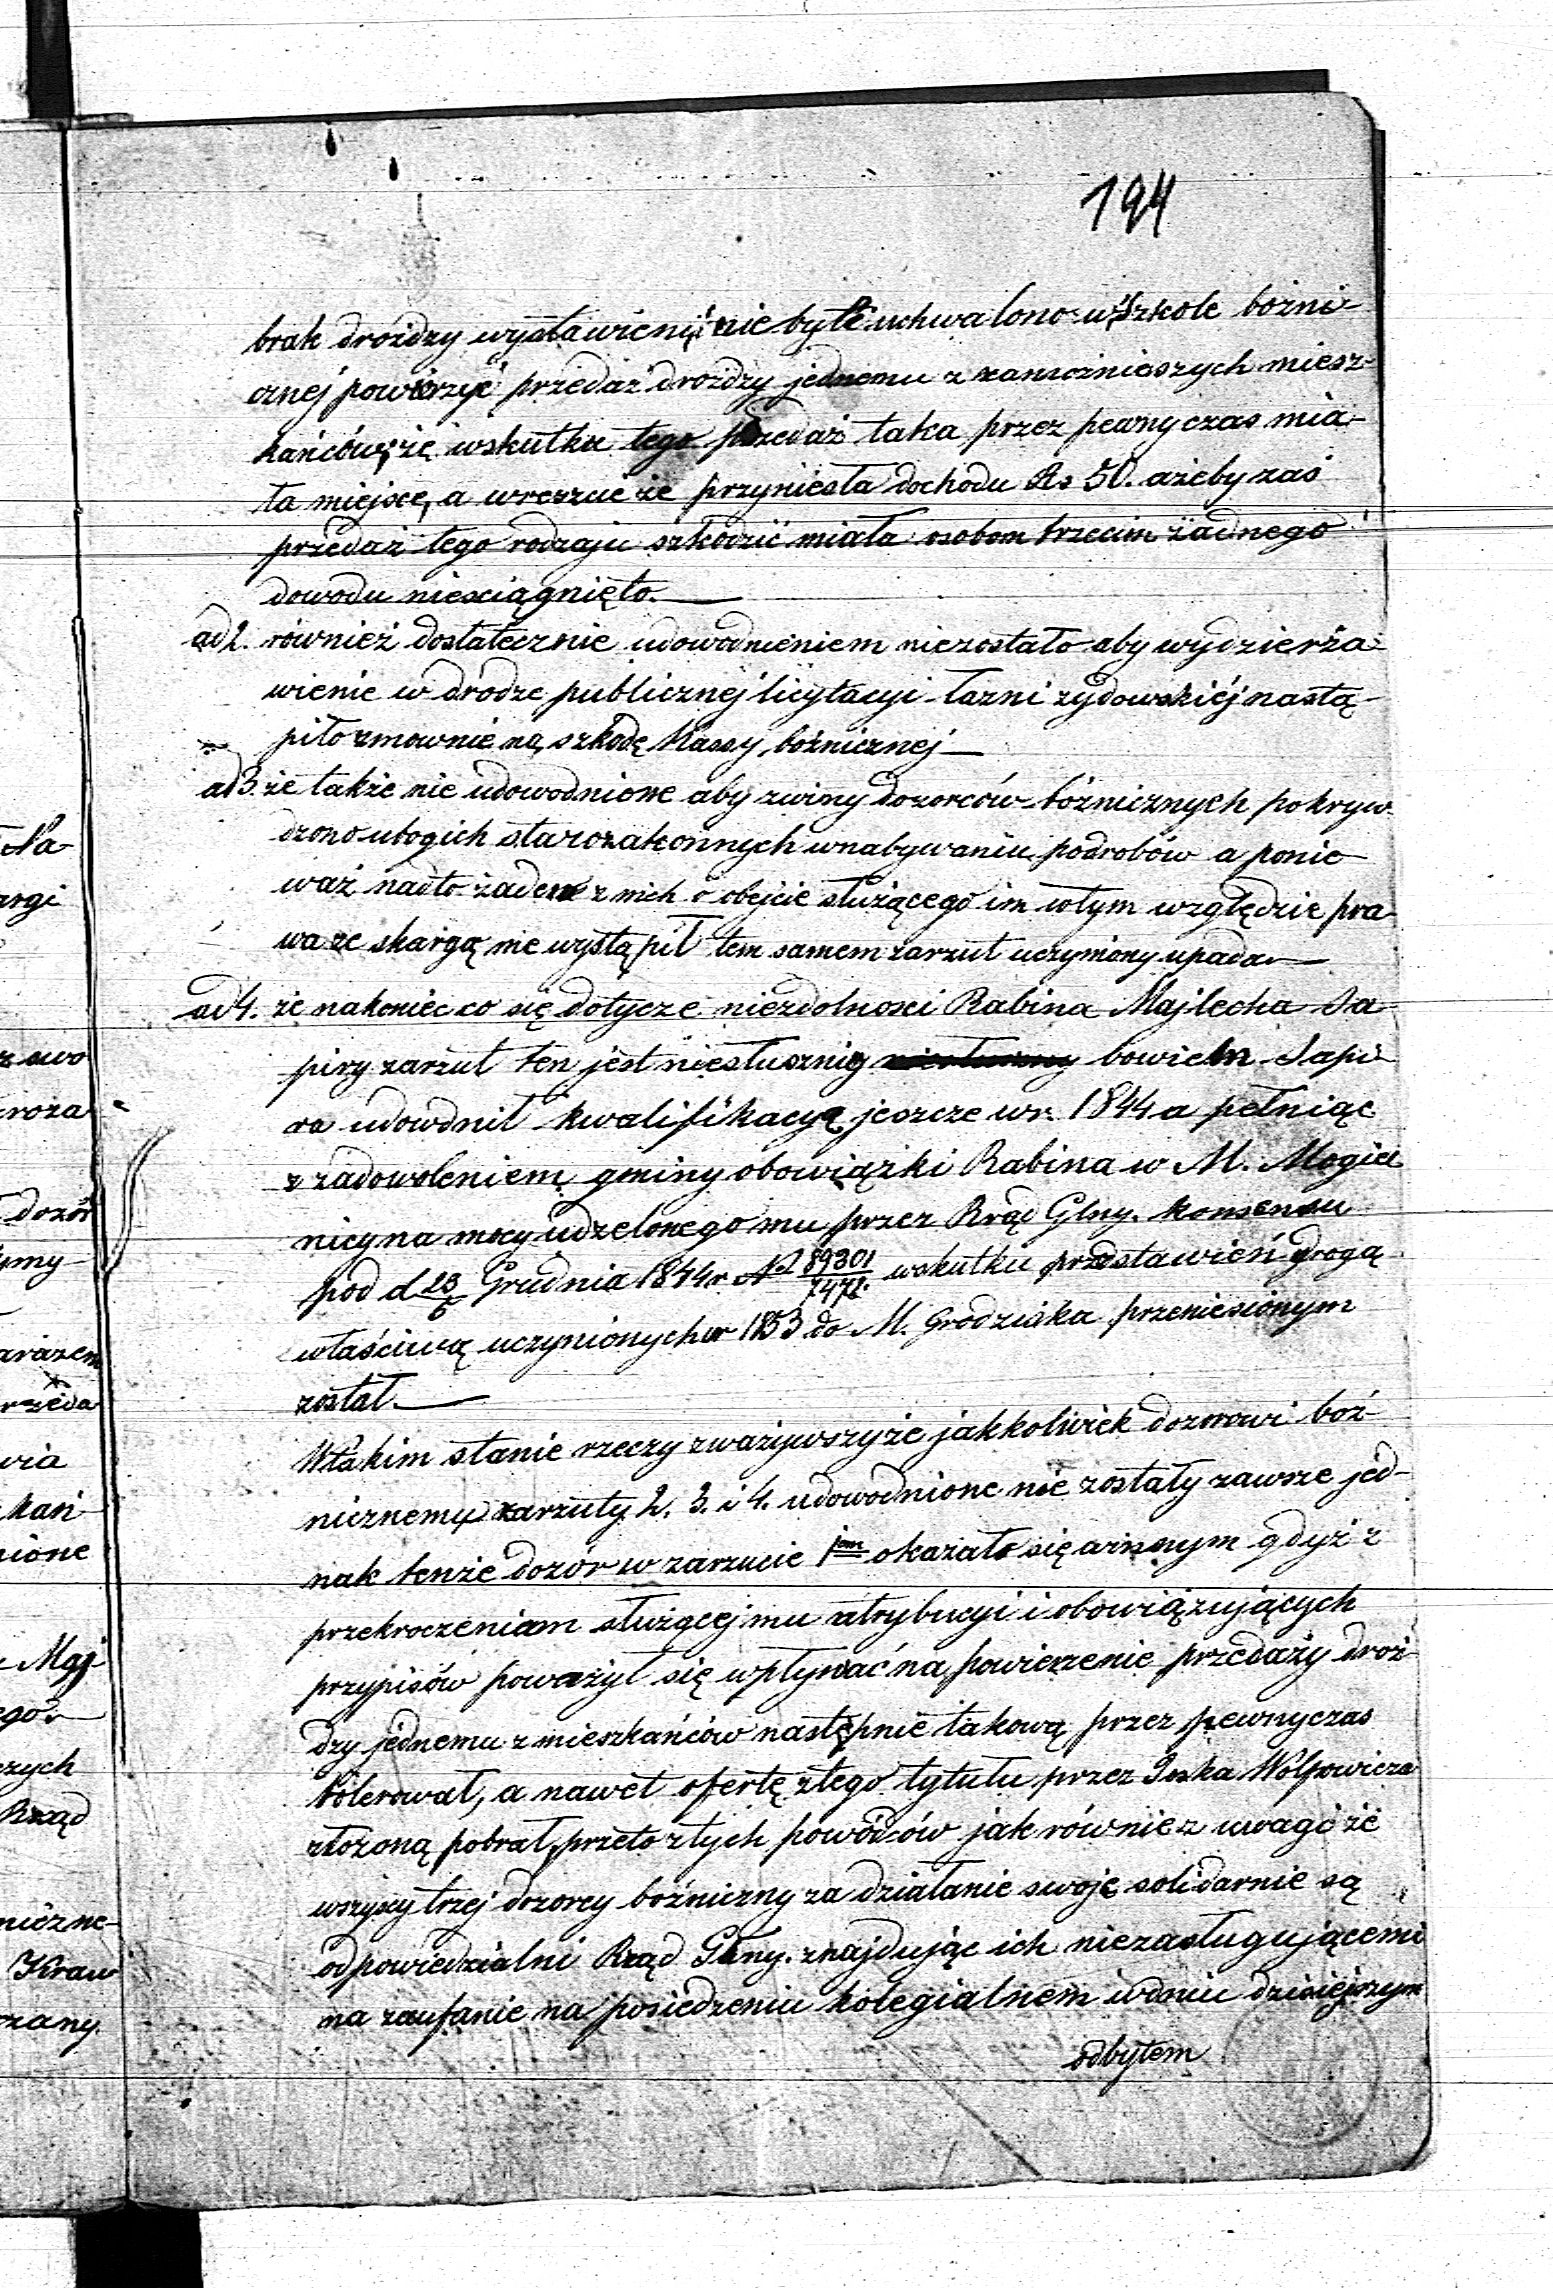 194
brak drożdzy wystawieni nie byli uchwalono w Szkole bożni-
cznej powierzyć przedaż drożdzy jednemu z zamożnieszych miesz-
kańców, że wskutku tego przedaż taka przez pewny czas mia-
ła miejsce, a wreszcie że przyniesła dochodu Rs 50. ażeby zaś
przedaż tego rodzaju szkodzić miała osobom trzecim żadnego
dowodu nieściągnięto.
ad 2. również dostatecznie udowodnieniem niezostało aby wydzierża-
wienie w drodze publicznej licytacyi łazni żydowskiej nastą-
piło zmownie na szkodę Kassy bożnicznej
ad 3. że także nie udowodnione aby zwiny dozorców bóżnicznych pokryw-
dzono ubogich starozakonnych wnabywaniu podrobów a ponie-
waż nadto żaden z nich o obejcie służącego im wtym względzie pra-
wa ze skargą nie wystąpił tem samem zarzut uczyniony upada
ad 4. że nakoniec co się dotycze niezdolności Rabina Majlecha Sa-
piry zarzut ten jest niesłuszny niesłuszny bowiem Sapi-
ra udowdnił kwalifikacyą jeszcze wr. 1844 a pełniąc
z zadowoleniem gminy obowiązki Rabina w M. Mogiel
nicy na mocy udzelonego mu przez Rząd Glny. konsensu
pod d 23/6 Grudnia 1844 r. N 89301/7472. wskutku przedstawień drogą
właściwą uczynionych w 1853 do M. Grodziska przeniesionym
został.
Wtakim stanie rzeczy zważywszy że jakkolwiek dozorowi boż-
nicznemu zarzuty 2. 3. i 4. udowodnione nie zostały zawsze jed-
nak tenże dozór w zarzucie 1em okazało się winnym gdyż z
przekroczeniem służącej mu atrybucyi i obowiązujących
przypisów poważył się wpływać na powierzenie przedaży droż-
dzy jednemu z mieszkańców następnie takową przez pewny czas
tolerował, a nawet ofertę ztego tytułu przez Joska Wolfowicza
złożoną pobrał, przeto ztych powodów jak również z uwagi że
wszyscy trzej dozorcy bożniczny za działanie swoje solidarnie są
odpowiedzialni Rząd Glny. znajdując ich niezasługującemi
na zaufanie na posiedzeniu kolegialnem wdniu dzisiejszym
odbytem